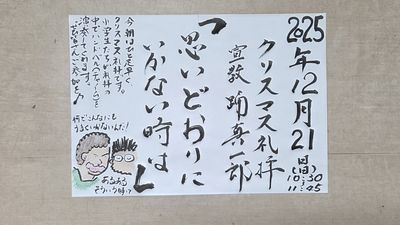 2025年12月21日(日)
10:30~11:45
クリスマス礼拝
宣教 踊真一郎
「思いどおりに
いかない時は」
今朝はひと足早く
クリスマス礼拝です。
小学生たちが礼拝の
中でハンドベルやチャイムを
演奏してくれます。
何でこんなにも
うまくいかないんだ!
あるある
そういう時!?